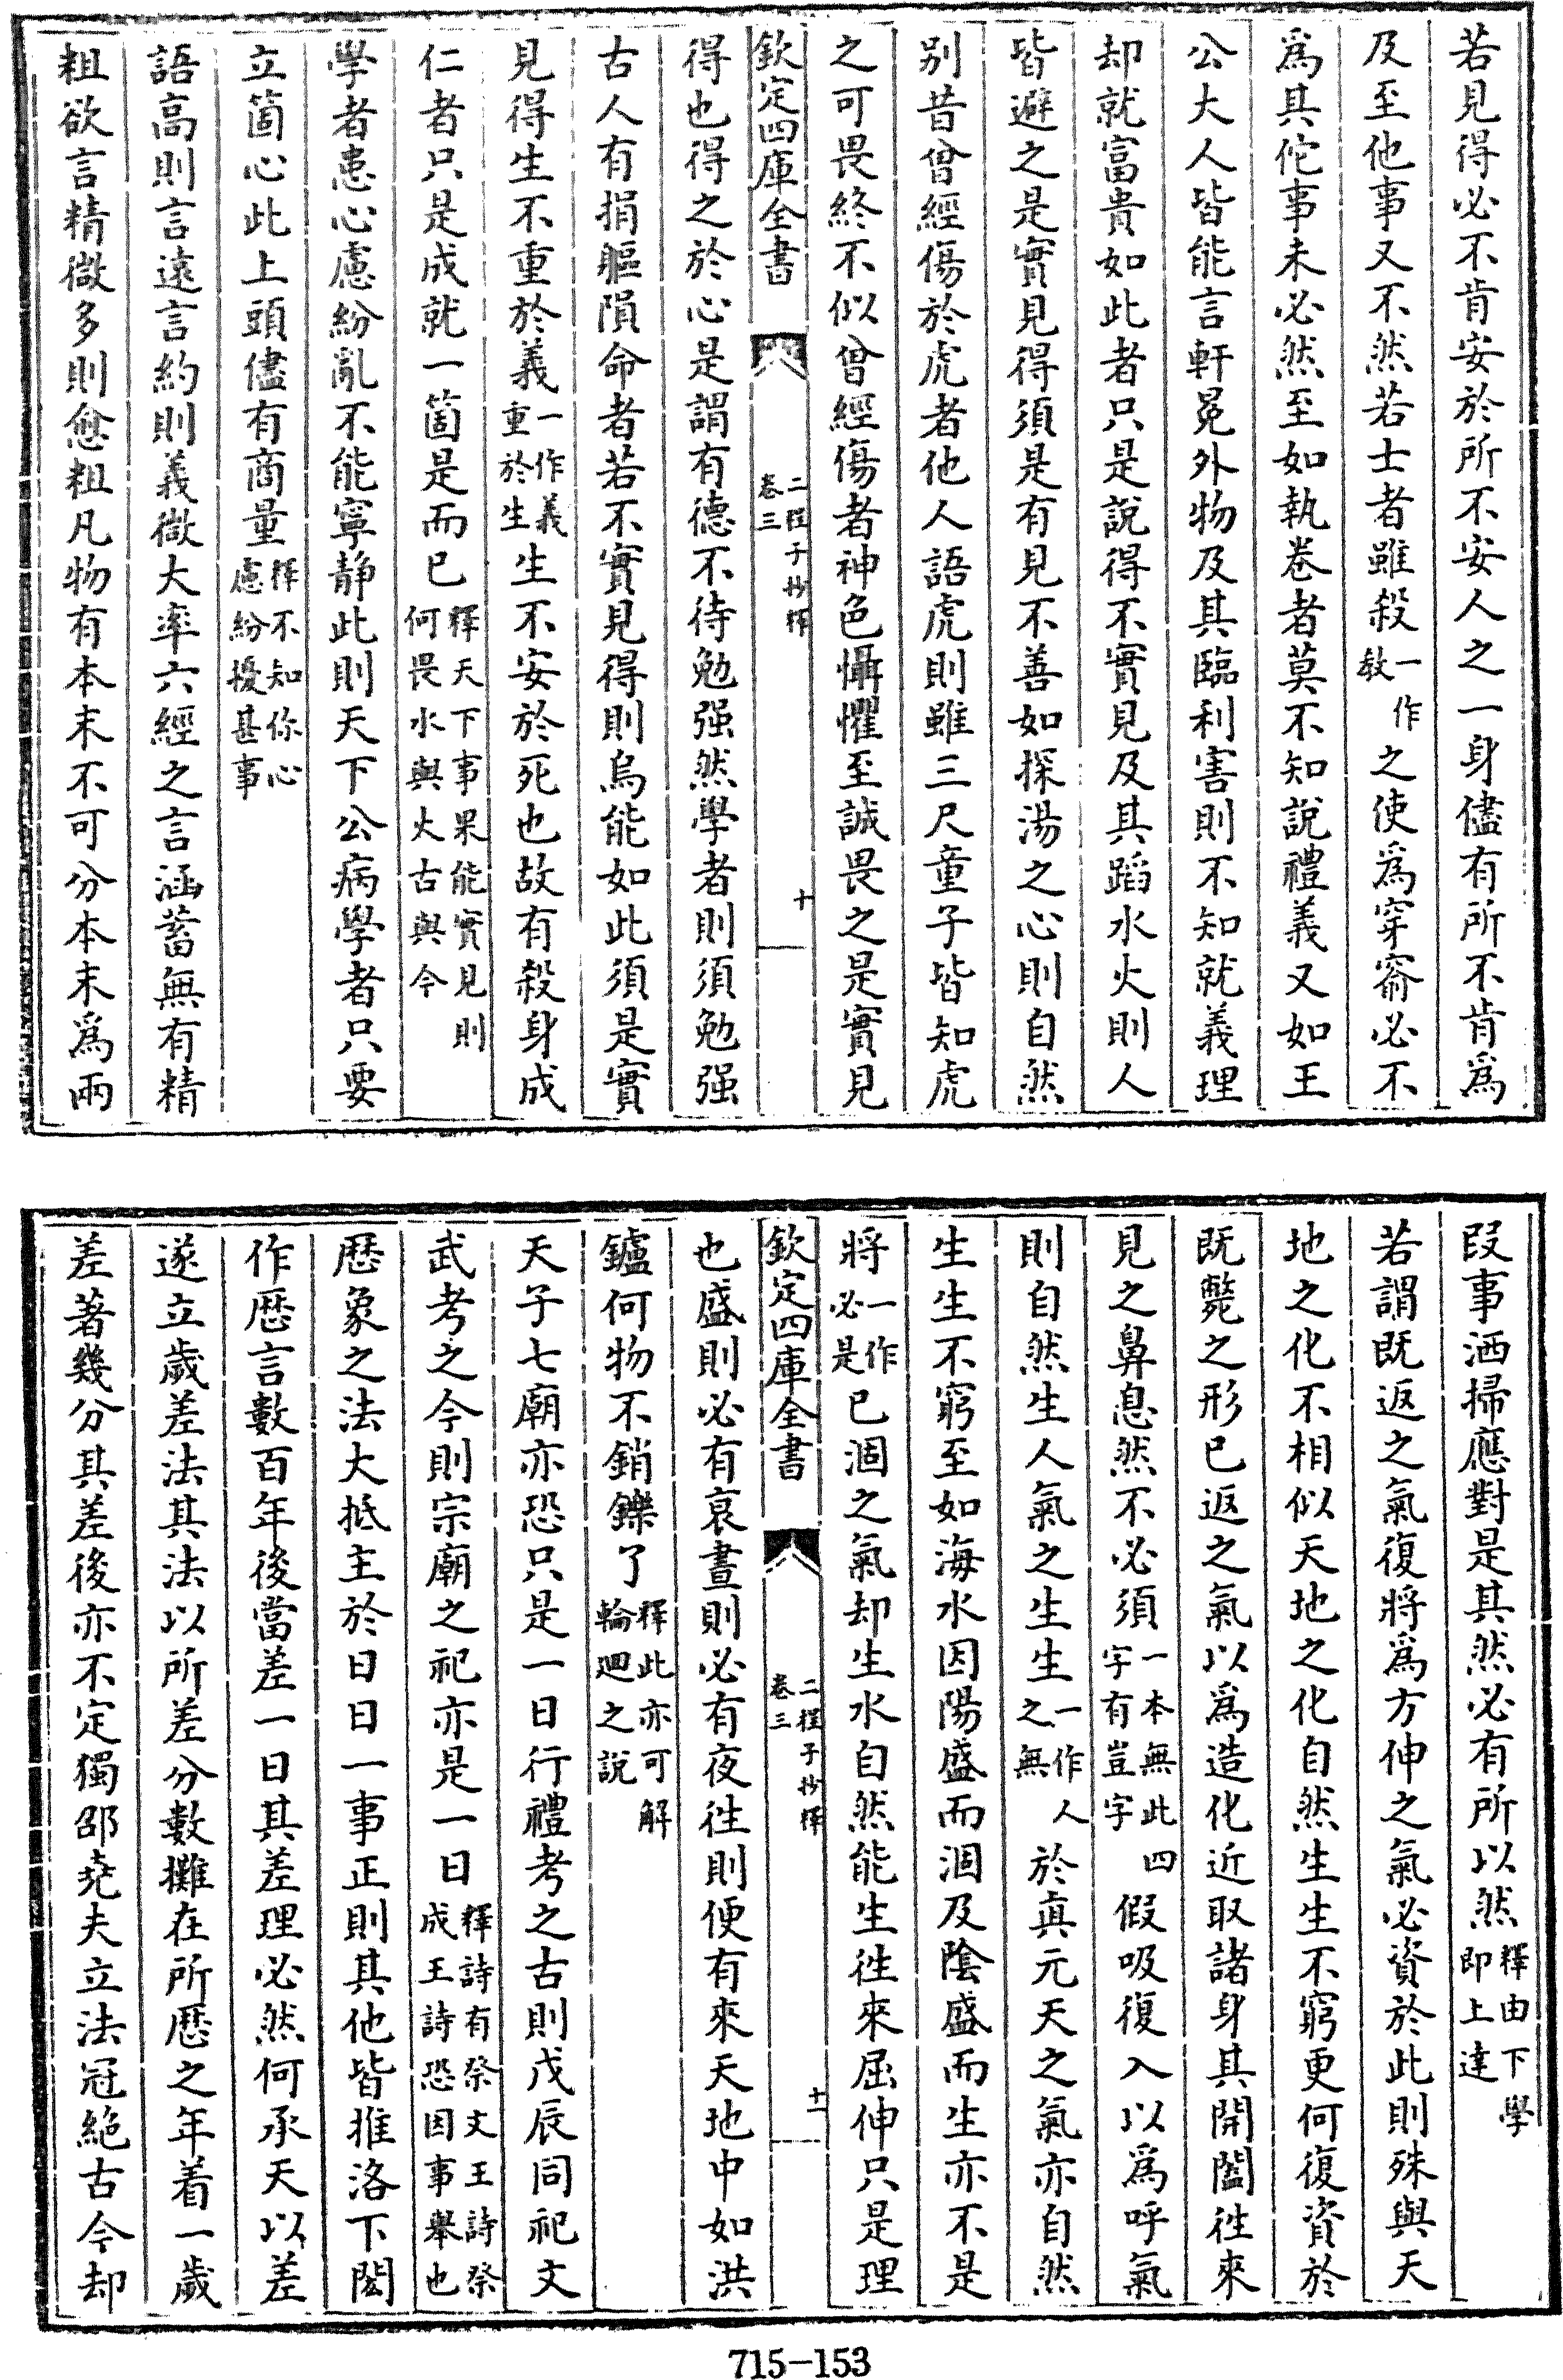 若見得必不肯安於所不安人之一身儘有所不肯爲
及至他事又不然若士者雖殺一作教之使爲穿窬必不
爲其佗事未必然至如執卷者莫不知說禮義又如王
公大人皆能言軒冕外物及其臨利害則不知就義理
却就富貴如此者只是說得不實見及其蹈水火則人
皆避之是實見得須是有見不善如探湯之心則自然
别昔曾經傷於虎者他人語虎則雖三尺童子皆知虎
之可畏終不似曾經傷者神色懾懼至誠畏之是實見
欽定四庫全書 二程子抄釋卷三 十
得也得之於心是謂有德不待勉强然學者則須勉强
古人有捐軀隕命者若不實見得則烏能如此須是實
見得生不重於義一作義重於生生不安於死也故有殺身成
仁者只是成就一箇是而已釋天下事果能實見則何畏水與火古與今
學者患心慮紛亂不能寧静此則天下公病學者只要
立箇心此上頭儘有商量釋不知你心慮紛擾甚事
語高則言遠言約則義微大率六經之言涵蓄無有精
粗欲言精微多則愈粗凡物有本末不可分本末爲兩
段事洒掃應對是其然必有所以然釋由下學即上達
若謂既返之氣復將爲方伸之氣必資於此則殊與天
地之化不相似天地之化自然生生不窮更何復資於
既斃之形已返之氣以爲造化近取諸身其開闔往來
見之鼻息然不必須一本無此四字有豈字假吸復入以爲呼氣
則自然生人氣之生生一作人之無於眞元天之氣亦自然
生生不窮至如海水因陽盛而涸及陰盛而生亦不是
將一作必是已涸之氣却生水自然能生往來屈伸只是理
欽定四庫全書 二程子抄釋卷三 十一
也盛則必有衰晝則必有夜往則便有來天地中如洪
鑪何物不銷鑠了釋此亦可解輪迴之說
天子七廟亦恐只是一日行禮考之古則戊辰同祀文
武考之今則宗廟之祀亦是一日釋詩有祭文王詩祭成王詩恐因事舉也
厯象之法大抵主於日日一事正則其他皆推洛下閎
作厯言數百年後當差一日其差理必然何承天以差
遂立歲差法其法以所差分數攤在所厯之年着一歲
差著幾分其差後亦不定獨邵尭夫立法冠絶古今却
715-153